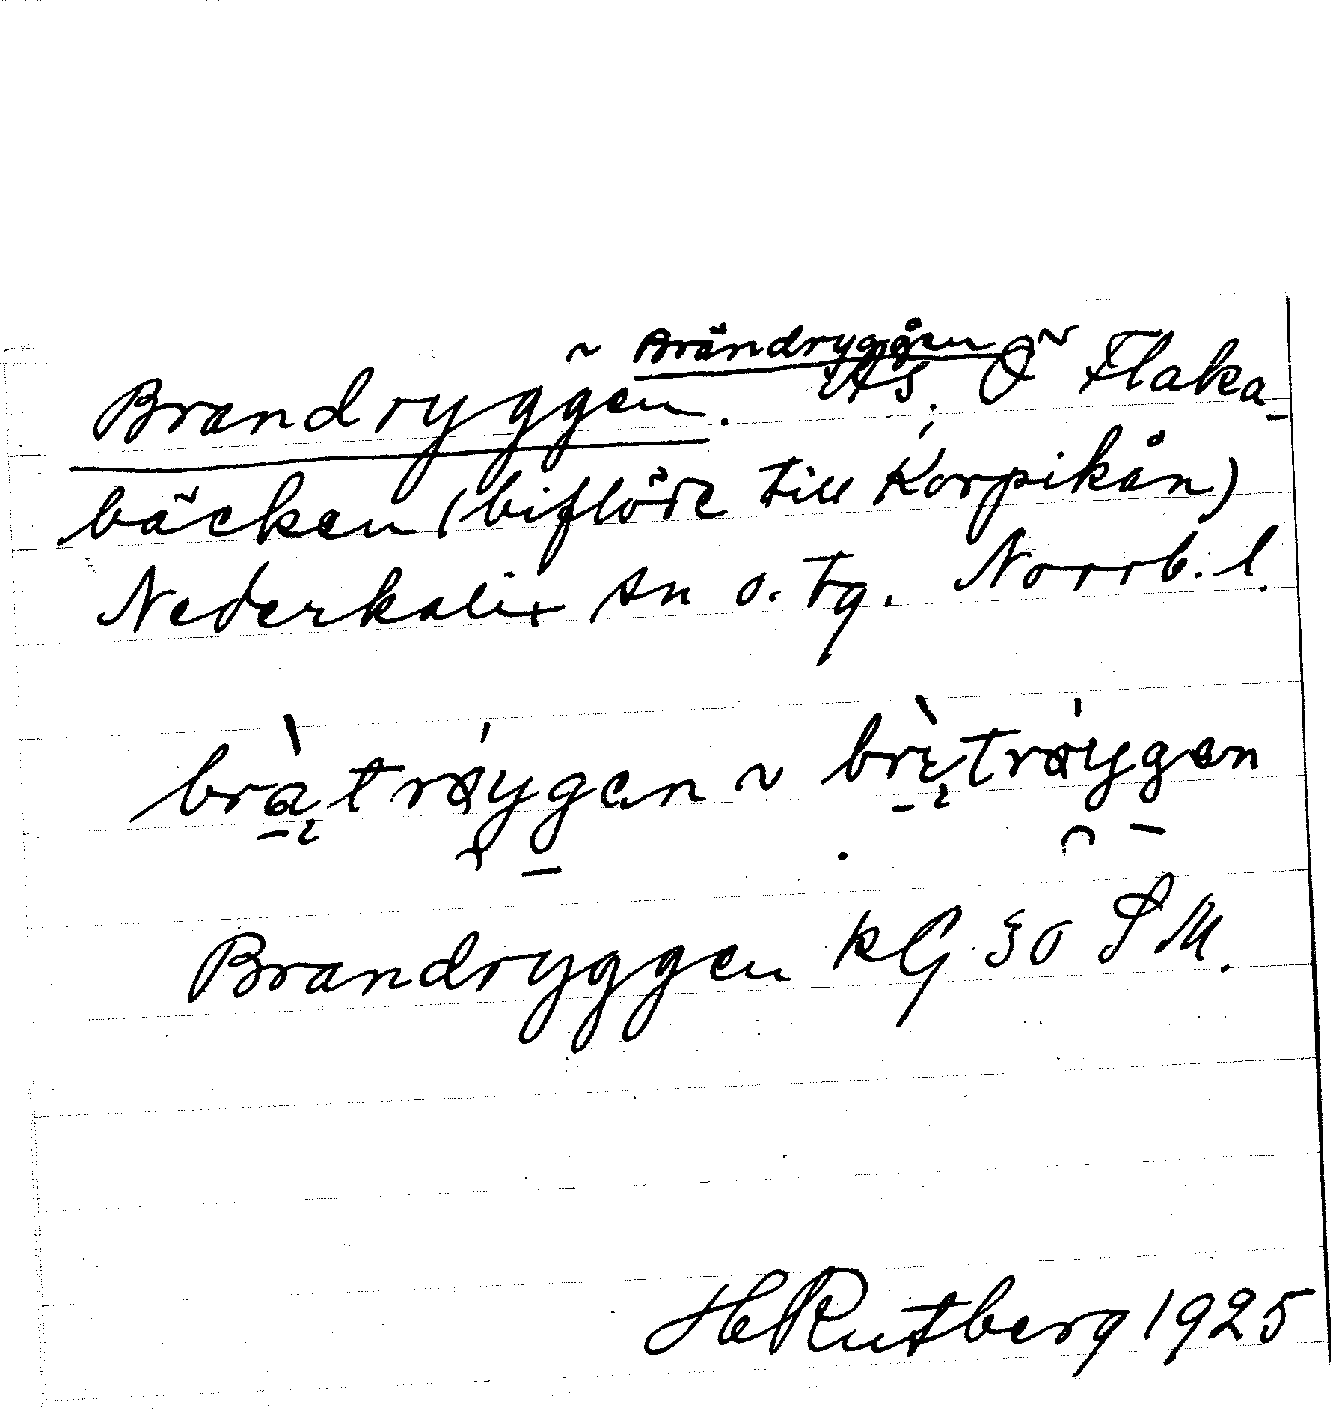 ~ Brändryggen
Brandryggen. Ås, Ö Flaka-
bäcken (biflöde till Korpikån)
Nederkalix sn o. tg. Norrb. l.
~
Brandryggen kG 30 SM.
HRutberg 1925